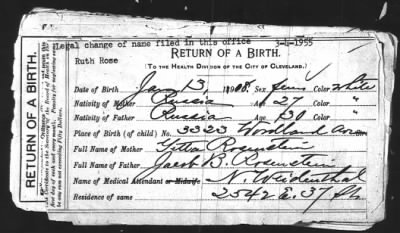 Legal change of name filed in this office 3-4-1955
Ruth Rose
RETURN OF A BIRTH.
(TO THE HEALTH DIVISION OF THE CITY OF CLEVELAND.)
Date of Birth Jan 13, 1908. Sex fem Color white
Nativity of Mother Russia Age 27 Color "
Nativity of Father Russia Age 30 Color "
Place of Birth (of child) No. 3323 Woodland Ave
Full Name of Mother Yetta Rosenstein
Full Name of Father Jacob B. Rosenstein
Name of Medical Attendant or Midwife N. Weidenthal
Residence of same 2542 E. 37 St.
RETURN OF A BIRTH.